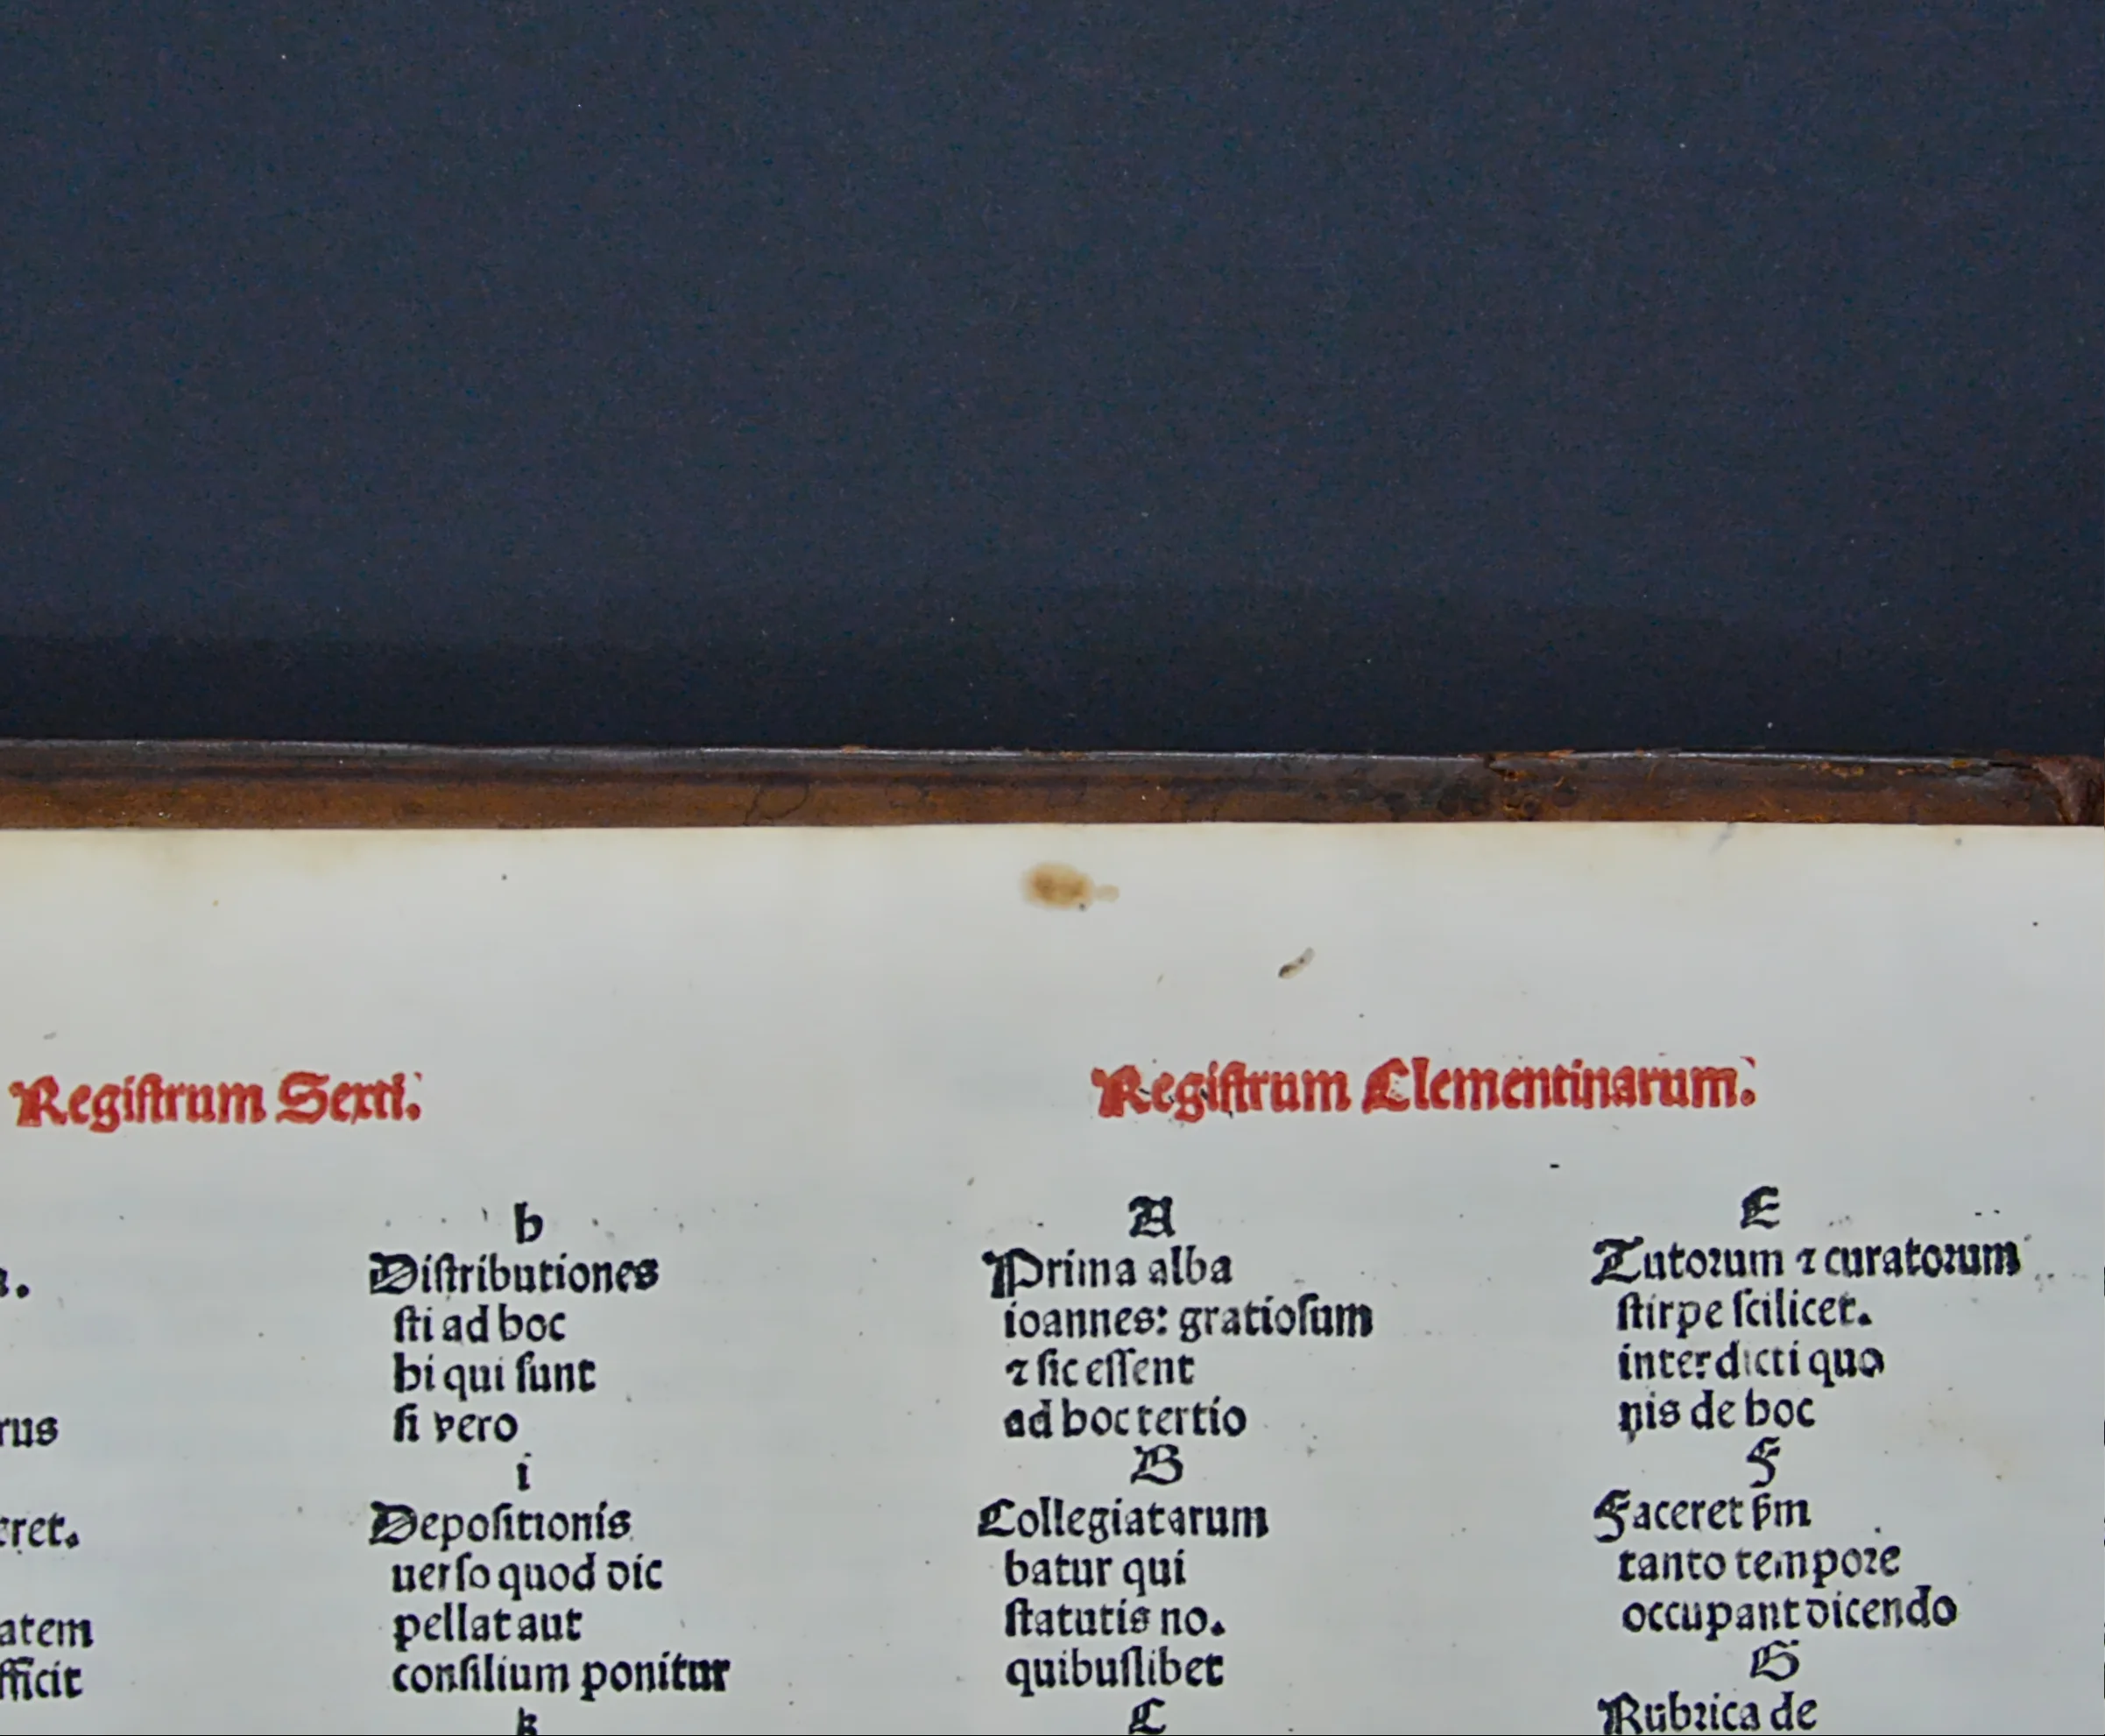 Registrum Sexti.
rus
eret.
atem
fficit
h
Distributiones
sti ad hoc
bi qui sunt
si vero
i
Depositionis
uerso quod dic
pellat aut
consilium ponitur
k
Registrum Clementinarum.
A
Prima alba
ioannes: gratiosum
⁊ sic essent
ad hoc tertio
B
Collegiatarum
batur qui
statutis no.
quibuslibet
C
E
Tutorum ⁊ curatorum
stirpe scilicet.
interdicti quo
nis de hoc
F
Faceret
tanto tempore
occupant dicendo
G
Rubrica de